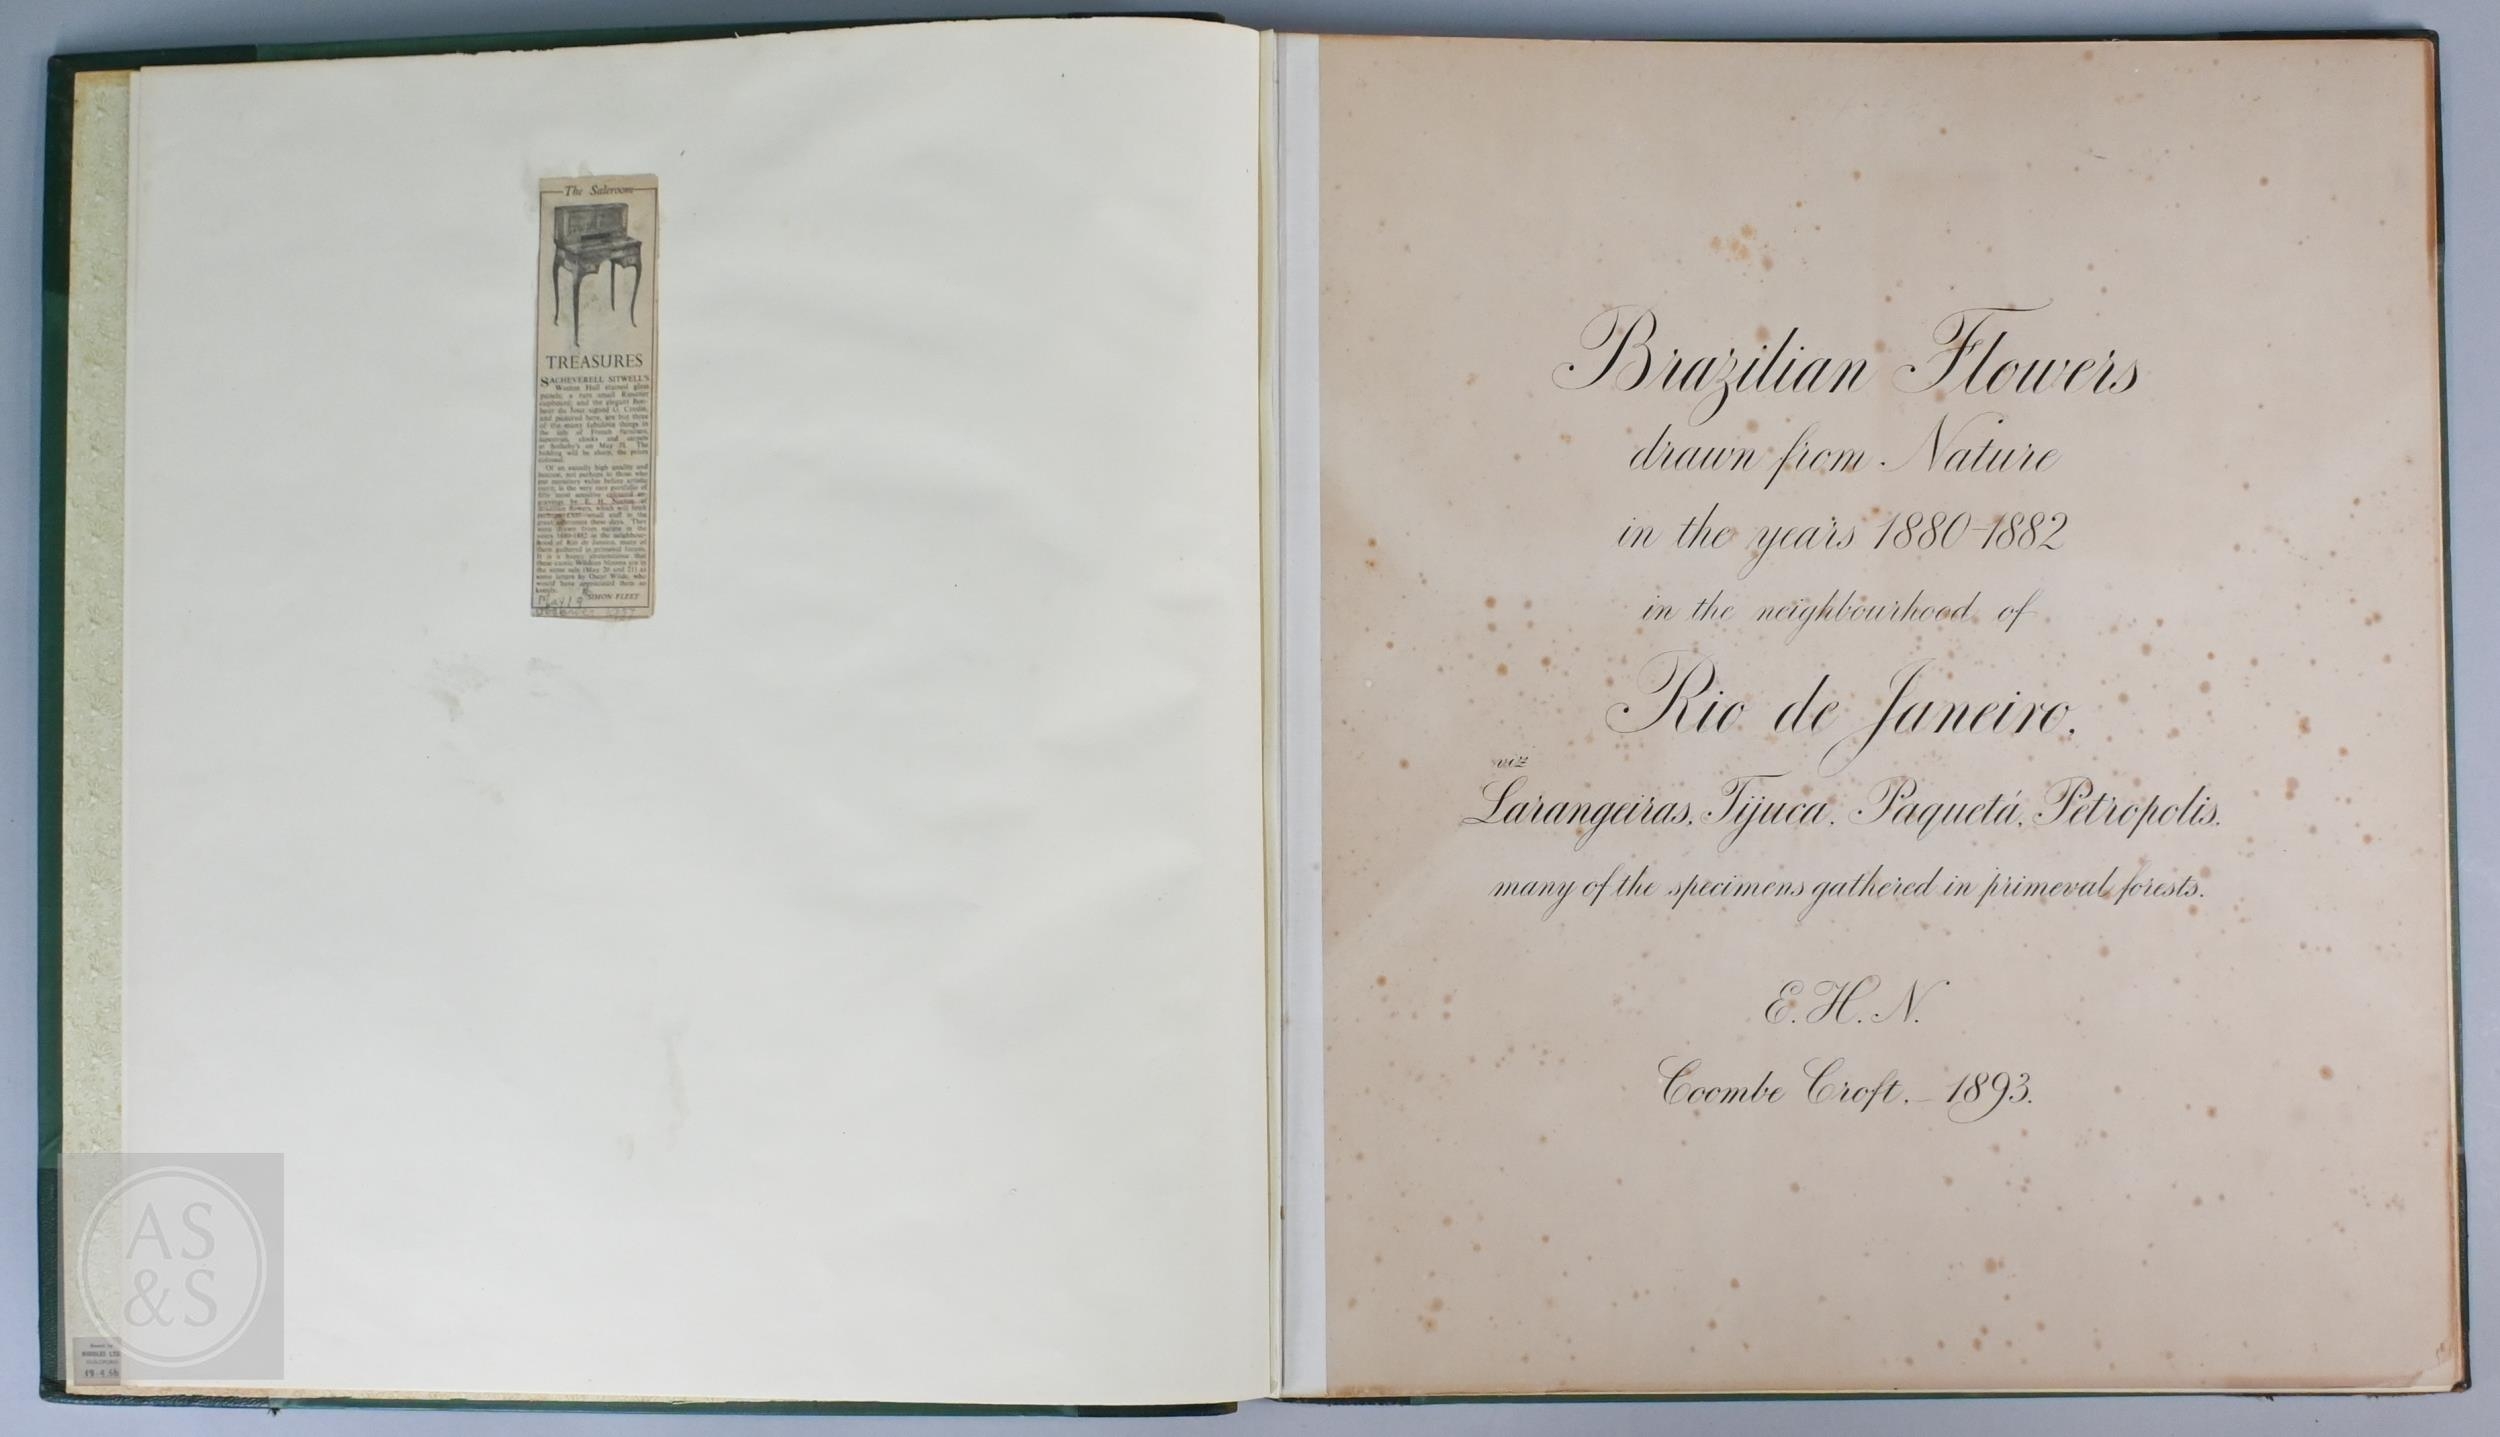 The Saleroom
TREASURES
SACHEVERELL SITWELL'S
Weston Hall stained glass
panels; a rare small
cupboard; and the elegant Bon-
heur du Jour signed
and pictured here, are but three
of the many fabulous things in
the sale of French furniture,
tapestries, clocks and carpets
at Sotheby's on May The
bidding will be sharp, the prices
colossal.
Of an equally high quality and
interest, not perhaps to those who
put monetary value before artistic
merit, is the very rare portfolio of
fifty most sensitive coloured en-
gravings by E. H. Norton of
Brazilian flowers, which will fetch
small stuff in the
great these days. They
were drawn from nature in the
years 1880-1882 in the neighbour-
hood of Rio de Janeiro, many of
them gathered in primeval forests.
It is a happy circumstance that
these exotic Wildean blooms are in
the same sale (May 20 and 21) as
some letters by Oscar Wilde, who
would have appreciated them so
keenly.
SIMON FLEET
May 19
Observer
Brazilian Flowers
drawn from Nature
in the years 1880-1882
in the neighbourhood of
Rio de Janeiro.
viz
Larangeiras. Tijuca. Paquetá. Petropolis.
many of the specimens gathered in primeval forests.
E. H. N.
Coombe Croft. - 1893.
AS
&S
Bound by
LTD
GUILDFORD